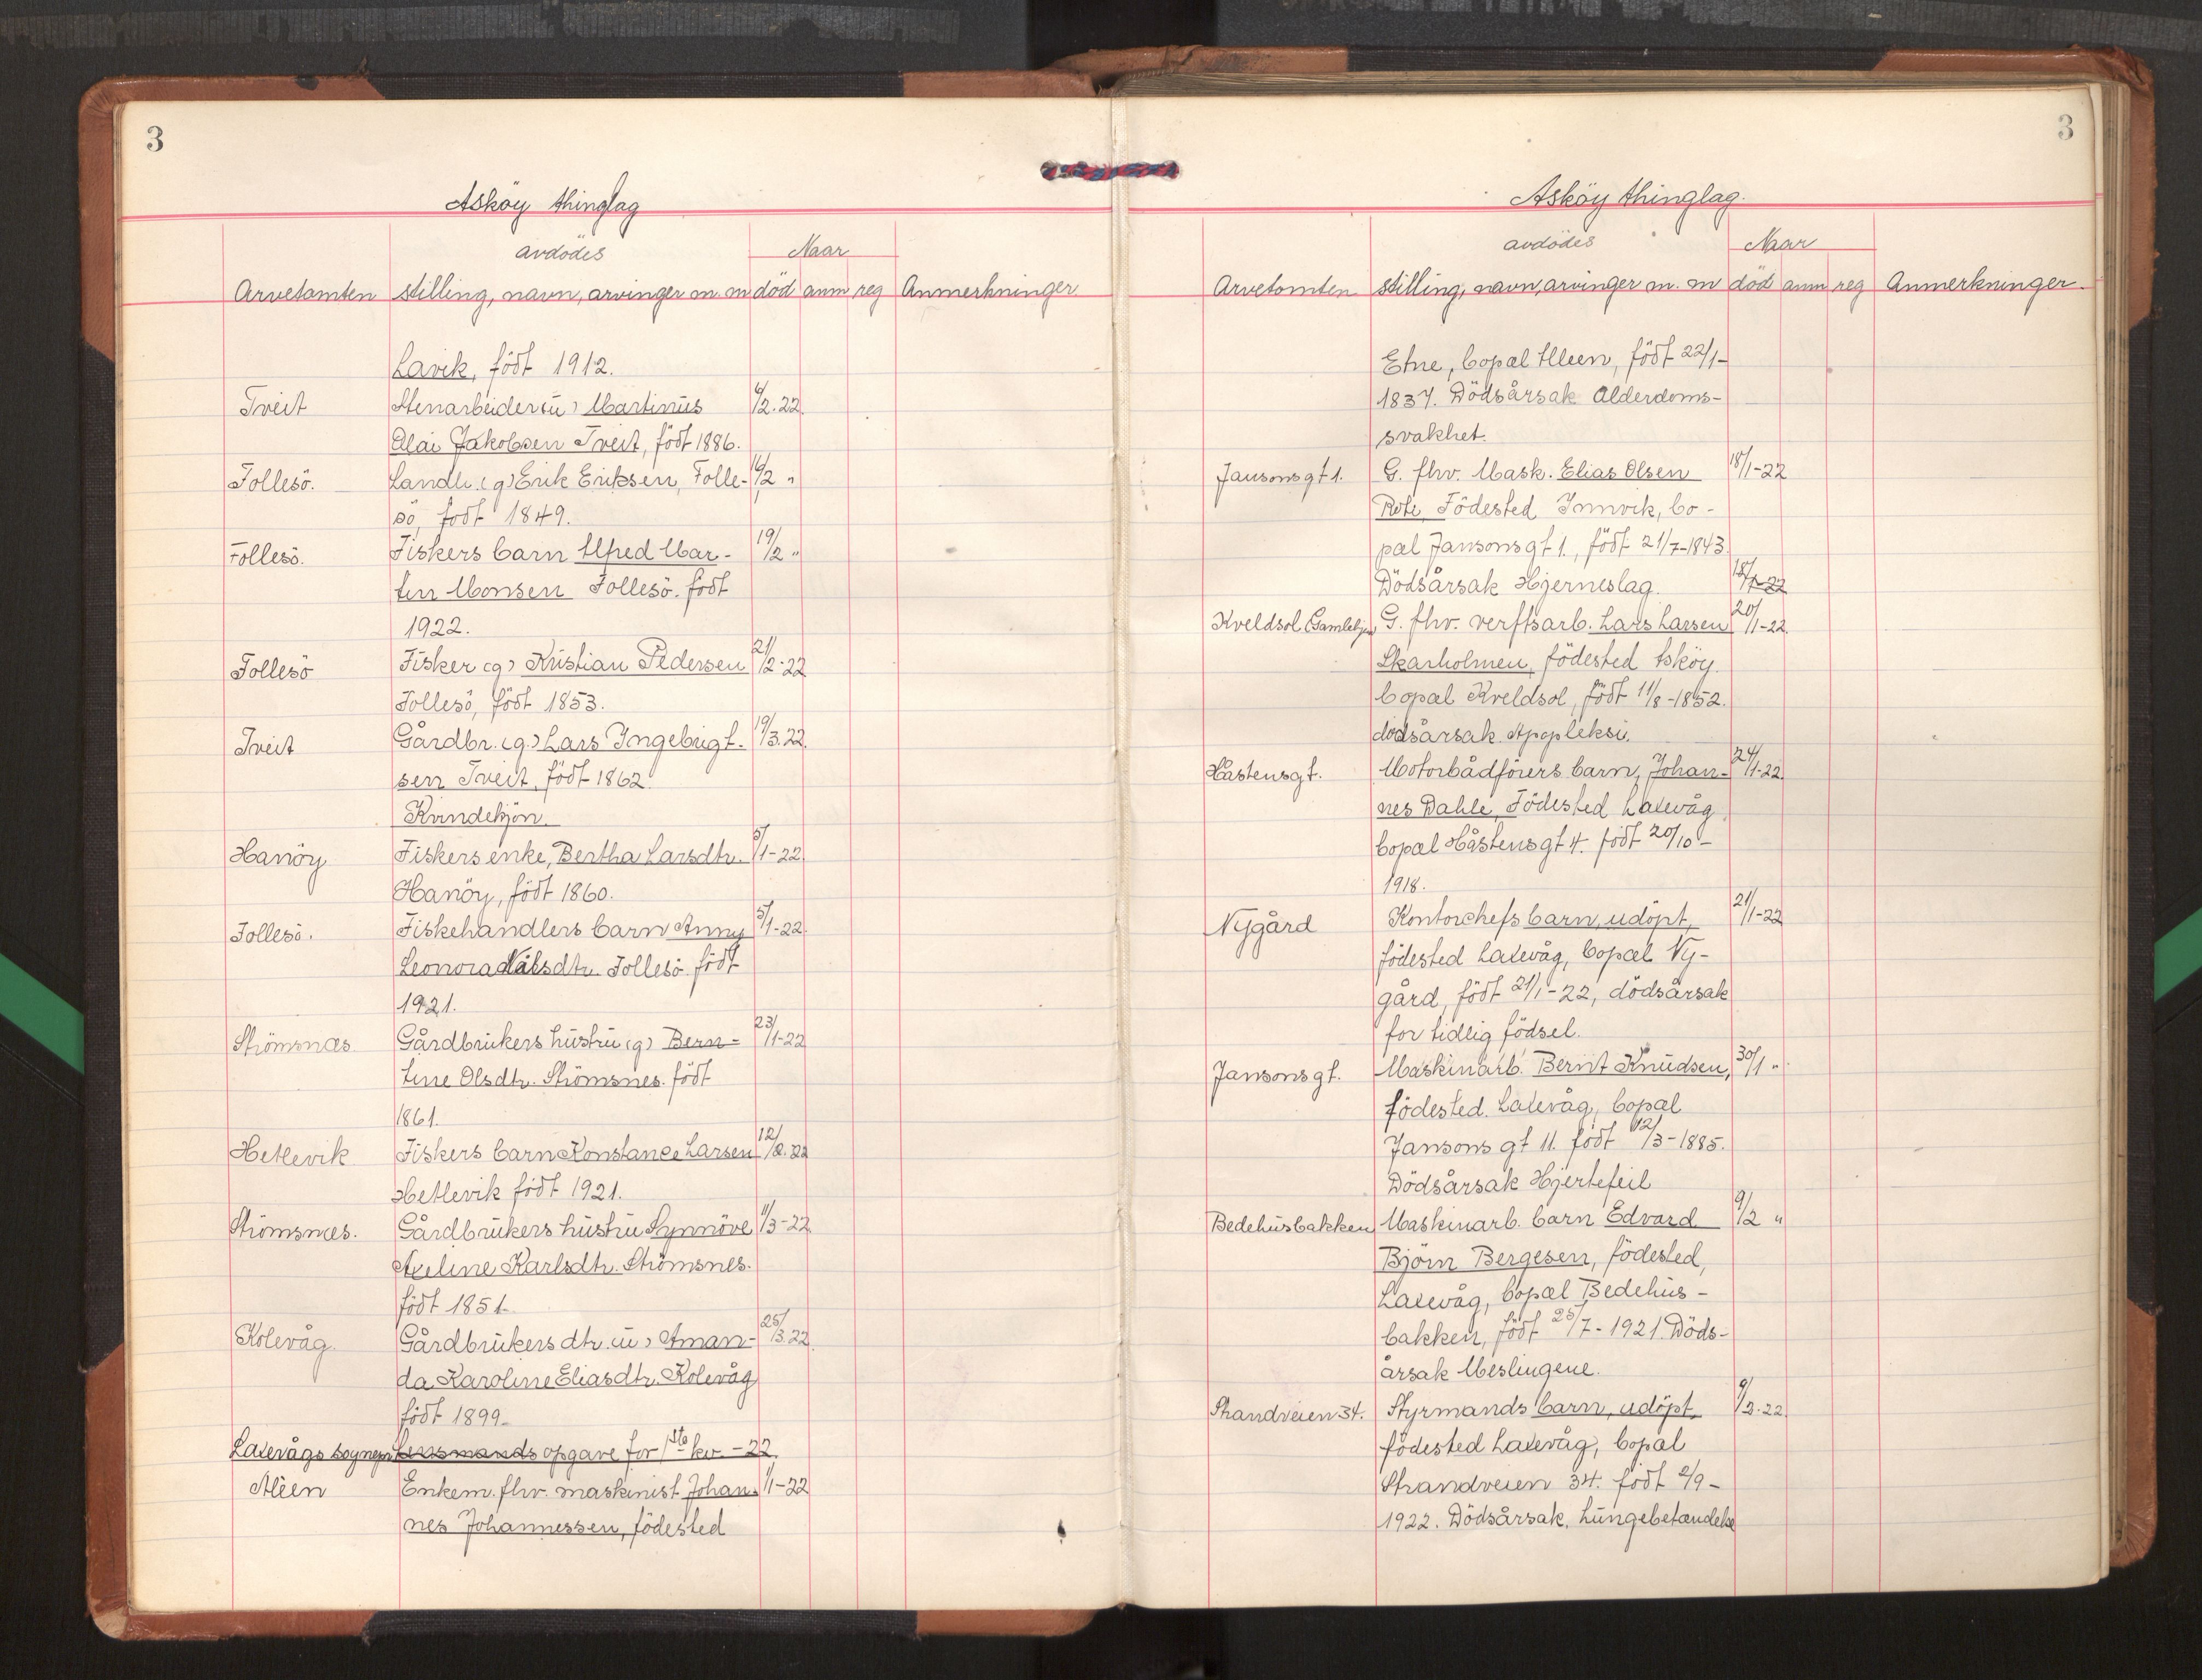 3
Asköy thinglag
avdödes
Naar
Arvetomten stilling, navn, arvinger m. m död anm reg Anmerkninger
Lavik, födt 1912.
Tveit Stenarbeider (u) Martinus 6/2.22.
Olai Jakobsen Tveit, födt 1886.
Follesö. Landh. (g) Erik Eriksen, Folle- 16/2 "
sö, födt 1849.
Follesö. Fiskers barn Alfred Mar- 19/2 "
tin Monsen Follesö. födt
1922.
Follesö Fisker (g) Kristian Pedersen 21/2-22
Follesö, födt 1853.
Tveit Gårdbr. (g.) Lars Ingebrigt- 19/3.22.
sen Tveit, födt 1862.
Kvindekjön.
Hanöy Fiskers enke, Bertha Larsdtr. 5/1-22.
Hanöy, födt 1860.
Follesö. Fiskehandlers barn Anny 5/1-22.
Leonora Nilsdtr. Follesö. födt
1921.
Strömsnæs Gårdbrukers hustru (g) Bern- 23/1-22
tine Olsdtr. Strömsnes. födt
1861.
Hetlevik Fiskers barn Konstance Larsen 12/2.22
Hetlevik födt 1921.
Strömsnæs. Gårdbrukers hustru Synnöve 11/3-22
Axeline Karlsdtr. Strömsnes.
födt 1851.
Kolevåg. Gårdbrukers dtr. (u) Aman- 25/3.22.
da Karoline Eliasdtr. Kolevåg
födt 1899.
Laxevågs sognepr Lensmands opgave for 1ste kv. -22.
Aleen Enkem. fhv. maskinist Johan- 1/1-22
nes Johannessen, födested
3
Asköy thinglag.
avdödes
Naar
Arvetomten stilling, navn, arvinger m. m död anm reg Anmerkninger.
Etne, bopæl Alleen, födt 22/1-
1837. Dödsårsak Alderdoms-
svakhet.
Jansonsgt 1. G. fhv. Mask. Elias Olsen 18/1-22
Rote, Födested Innvik, bo-
pæl Jansonsgt 1., födt 21/7-1843.
Dödsårsak Hjerneslag. 18/1-22
Kveldsol G. fhv. verftsarb. Lars Larsen 20/1-22.
Skarholmen, födested Asköy.
bopæl Kveldsol, födt 11/8-1852.
dödsårsak. Apopleksi.
Håstensgt. Motorbådförers barn, Johan- 24/1-22.
nes Dahle, Födested Laxevåg
bopæl Håstensgt 4. födt 20/10-
1918.
Nygård Kontorchefs barn, udöpt, 21/1-22
födested Laxevåg, bopæl Ny-
gård, födt 21/1-22, dödsårsak
for tidlig födsel.
Jansonsgt. Maskinarb. Bernt Knudsen, 30/1 "
födested. Laxevåg, bopæl
Jansons gt 11. födt 12/3-1885.
Dödsårsak Hjertefeil
Bedehusbakken Maskinarb. barn Edvard 9/2 "
Björn Bergesen, födested,
Laxevåg, bopæl Bedehus-
bakken, födt 25/7-1921. Döds-
årsak Meslingene.
Strandveien 34. Styrmands barn, udöpt, 9/2.22.
födested Laxevåg, bopæl
Strandveien 34. födt 2/9-
1922. Dödsårsak, Lungebetændelse